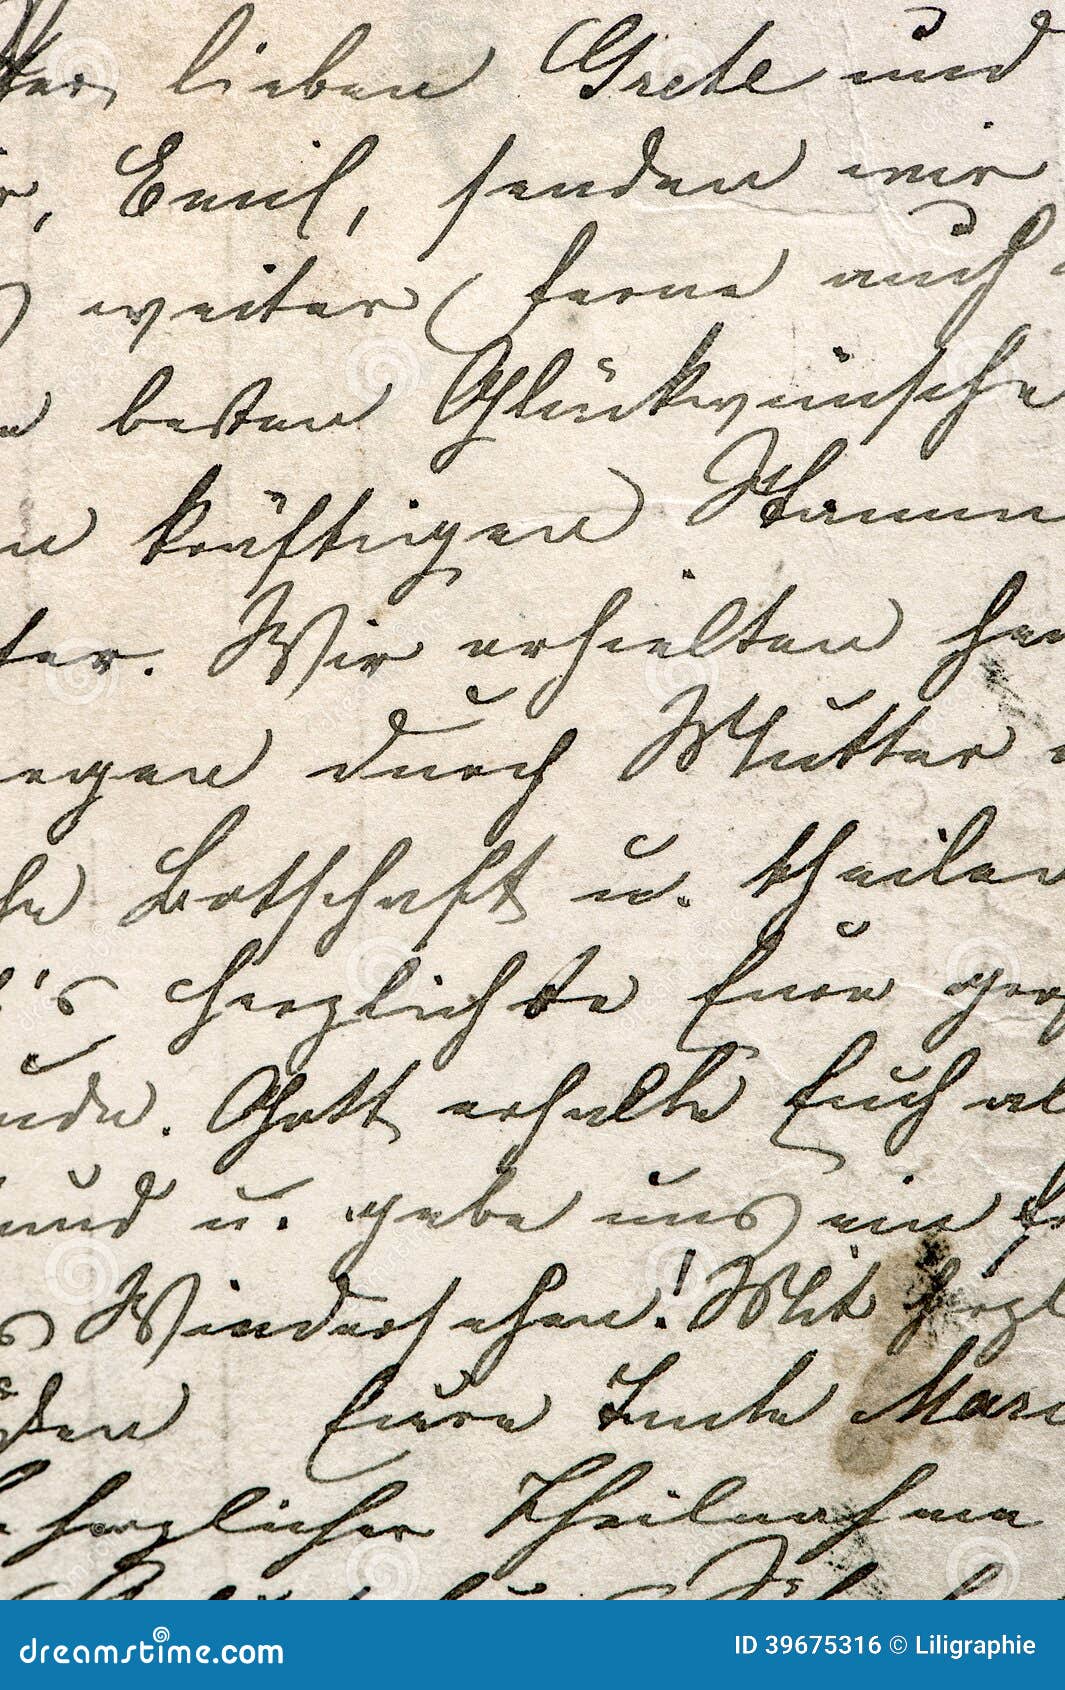 lieben Grete und
, Emil, senden wir
weiter Ferne auch
besten Glückwünsche
kräftigen Stamm
ter. Wir erhielten heu
egen durch Mutter
Botschaft u. theilen
's herzlichste Eure gro
ude. Gott erhalte Euch al
und u. gebe uns ein fr
s Wiedersehen! Mit herzl
ßen Eure Tante Mari
herzlicher Theilnahme
dreamstime.com ID 39675316 © Liligraphie